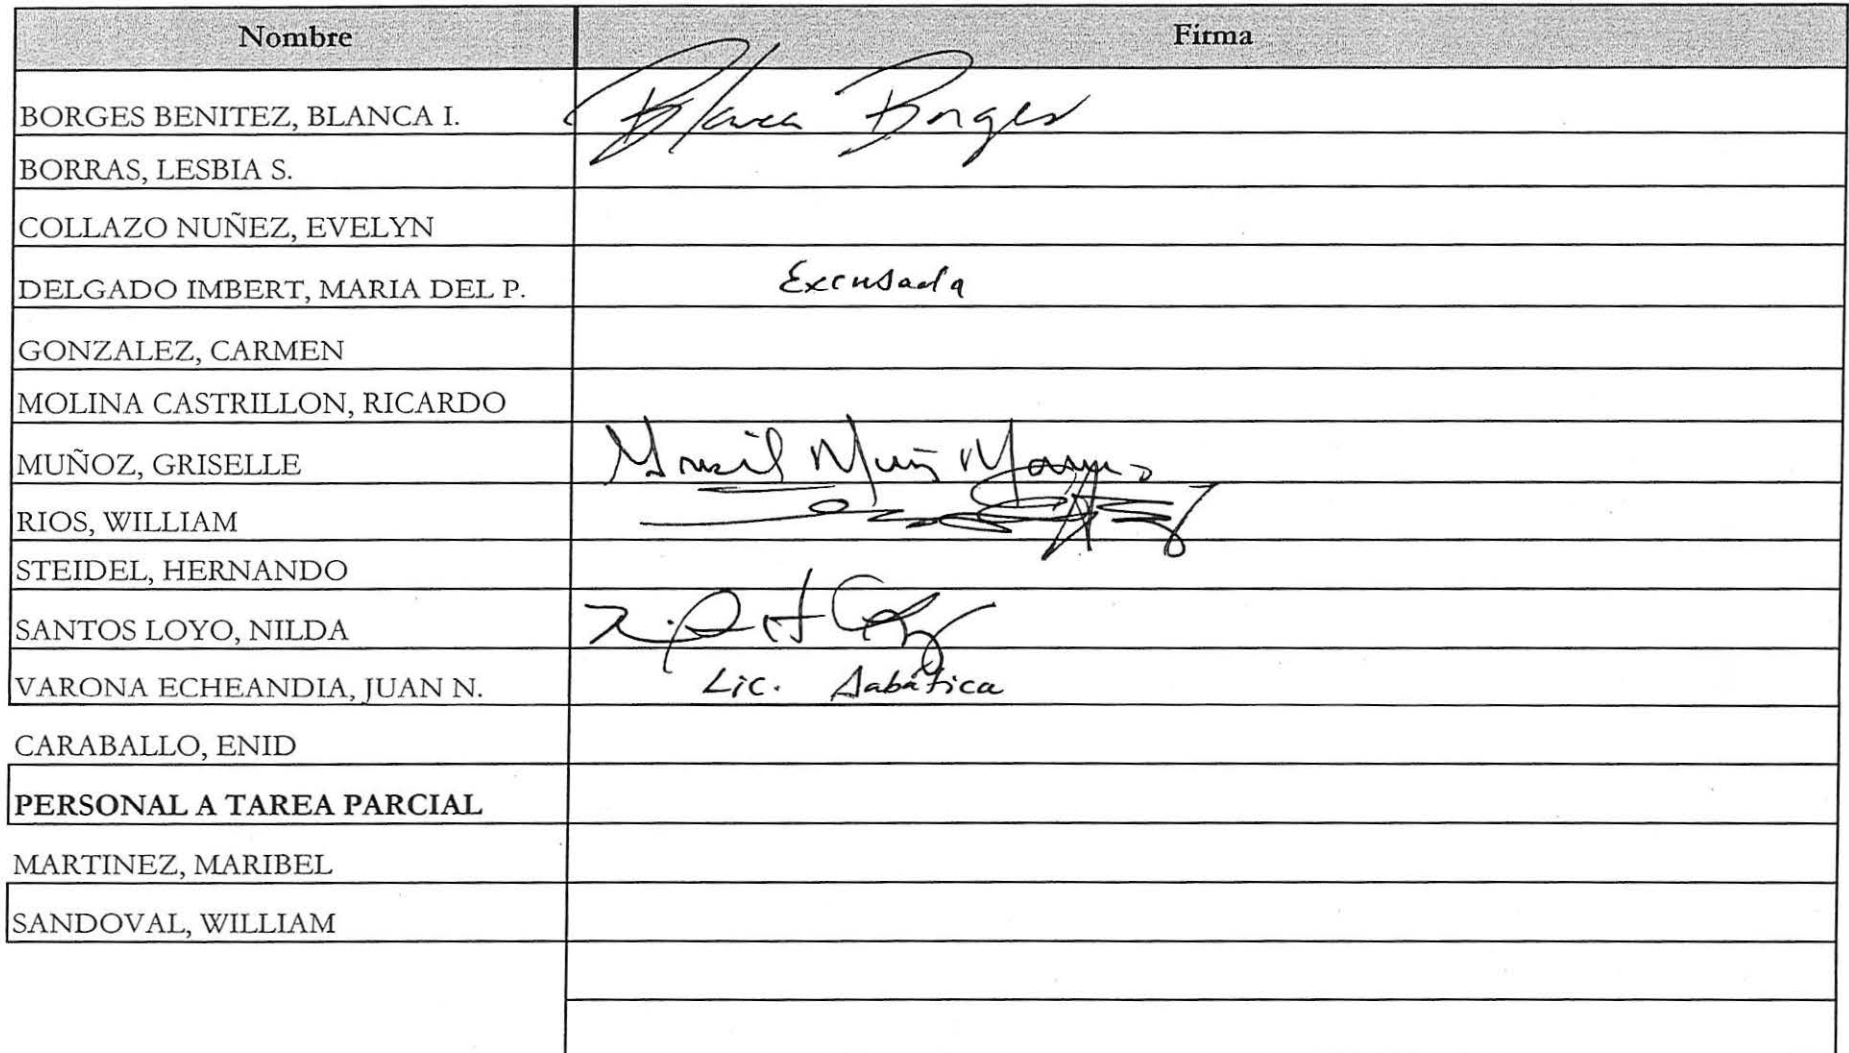 Nombre Firma
BORGES BENITEZ, BLANCA I. Blanca Borges
BORRAS, LESBIA S.
COLLAZO NUÑEZ, EVELYN
DELGADO IMBERT, MARIA DEL P. Excusada
GONZALEZ, CARMEN
MOLINA CASTRILLON, RICARDO
MUÑOZ, GRISELLE
RIOS, WILLIAM
STEIDEL, HERNANDO
SANTOS LOYO, NILDA
VARONA ECHEANDIA, JUAN N. Lic. Sabática
CARABALLO, ENID
PERSONAL A TAREA PARCIAL
MARTINEZ, MARIBEL
SANDOVAL, WILLIAM